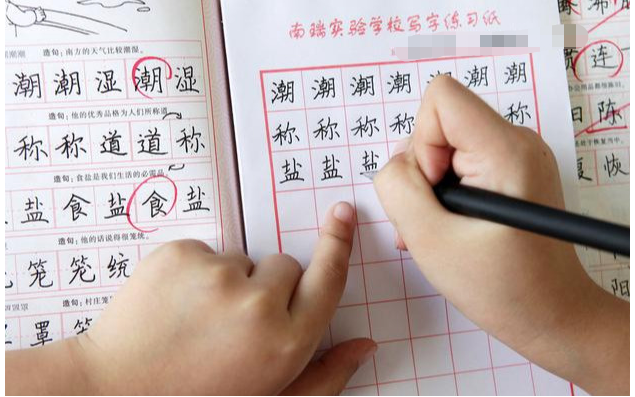 造句：南方的天气比较潮湿。
潮潮湿潮湿
造句：他的优秀品格为人们所称道
称称道道称
造句：食盐是我们生活的必需品
盐食盐食盐
造句：他的话说得很笼统。
笼笼统
造句：村庄笼
罩笼
南瑞实验学校写字练习纸
潮潮潮潮潮潮潮
称称称称称
盐盐盐
连
陈
复恢
阳